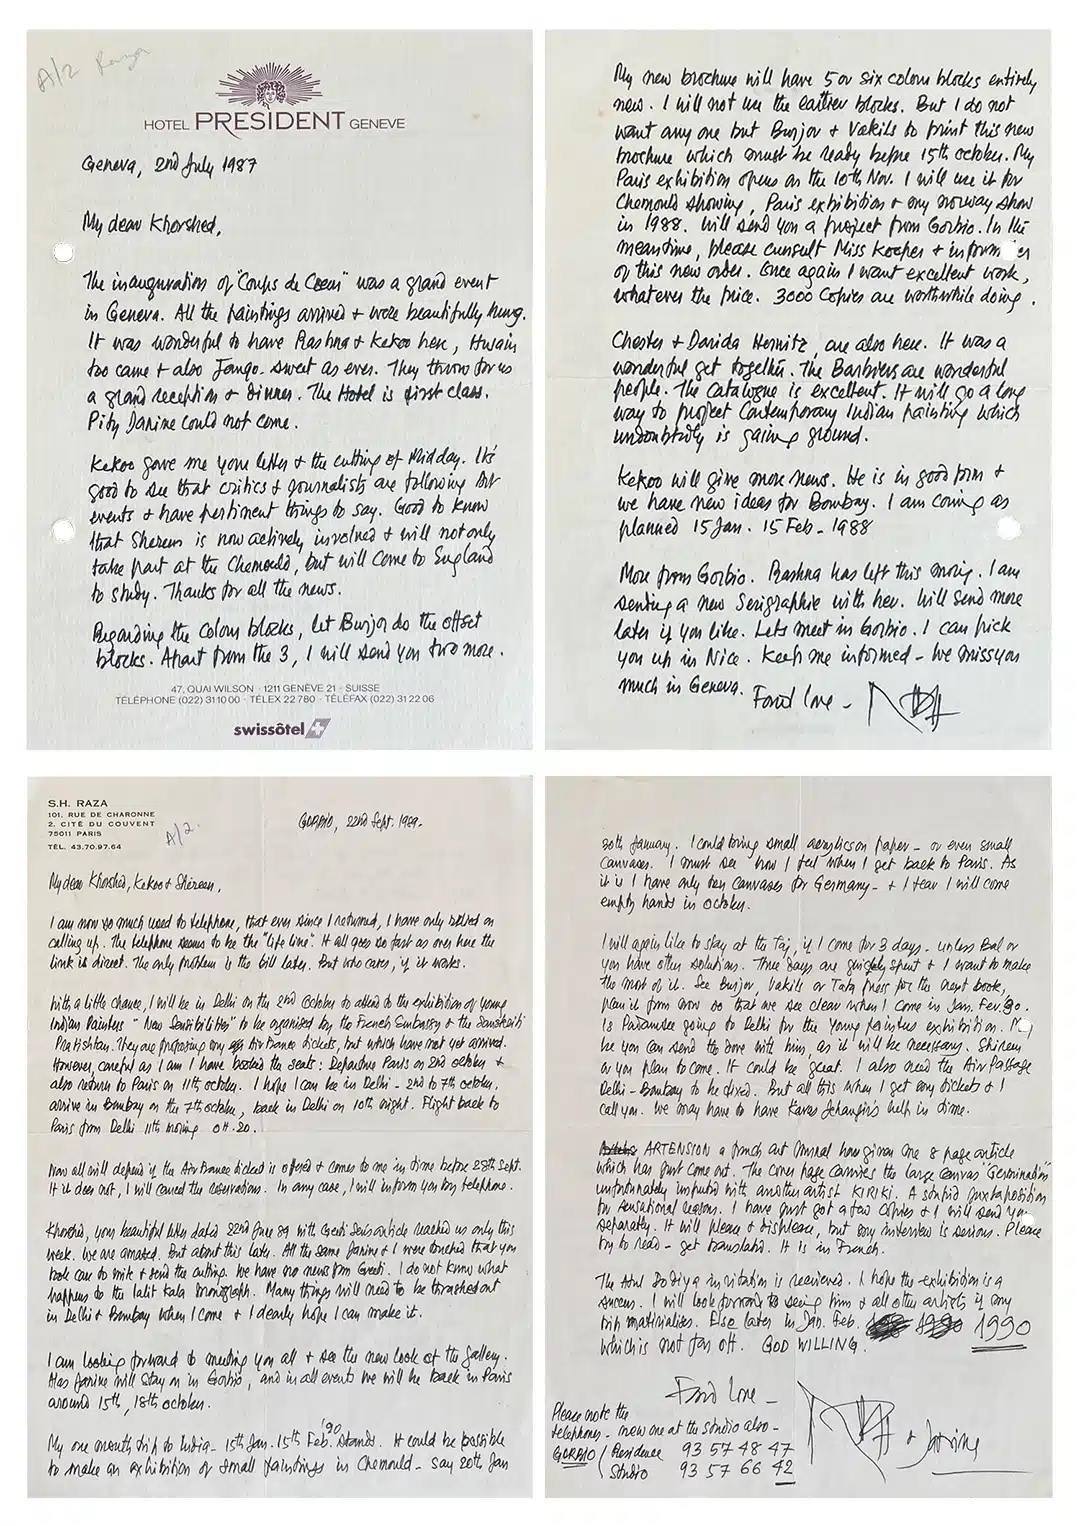 A/2 Raza
HOTEL PRESIDENT GENEVE
Geneva, 2nd July 1987
My dear Khorshed,
The inauguration of "Coups de Coeur" was a grand event
in Geneva. All the paintings arrived + were beautifully hung.
It was wonderful to have Rashna + Kekoo here, Husain
too came + also Jango. Sweet as ever. They throw for us
a grand reception + dinner. The Hotel is first class.
Pity Janine could not come.
Kekoo gave me your letter + the cutting of Midday. It's
good to see that critics + journalists are following Art
events + have pertinent things to say. Good to know
that Shereen is now actively involved + will not only
take part at the Chemould, but will come to England
to study. Thanks for all the news.
Regarding the Colour blocks, let Burjor do the offset
blocks. Apart from the 3, I will send you two more.
47, QUAI WILSON · 1211 GENÈVE 21 · SUISSE
TÉLÉPHONE (022) 31 10 00 · TÉLEX 22 780 · TÉLÉFAX (022) 31 22 06
swissôtel
My new brochure will have 5 or six colour blocks entirely
new. I will not use the earlier blocks. But I do not
want any one but Burjor + Vakils to print this new
brochure which must be ready before 15th october. My
Paris exhibition opens on the 10th Nov. I will use it for
Chemould showing, Paris exhibition + my norway show
in 1988. Will send you a project from Gorbio. In the
meantime, please consult Miss Kooper + inform
of this new order. Once again I want excellent work,
whatever the price. 3000 Copies are worthwhile doing.
Chester + Davida Herwitz, are also here. It was a
wonderful get together. The Barbiers are wonderful
people. The Catalogue is excellent. It will go a long
way to project Contemporary Indian painting which
undoubtedly is gaining ground.
Kekoo will give more news. He is in good form +
we have new ideas for Bombay. I am coming as
planned 15 Jan. 15 Feb - 1988
More from Gorbio. Rashna has left this morning. I am
sending a new Serigraphie with her. Will send more
later if you like. Lets meet in Gorbio. I can pick
you up in Nice. Keep me informed - We miss you
much in Geneva. Fond love -
S.H. RAZA
101, RUE DE CHARONNE
2, CITÉ DU COUVENT
75011 PARIS
TEL. 43.70.97.64
A/2.
GORBIO, 22nd Sept. 1989.
My dear Khorshed, Kekoo + Shireen,
I am now so much used to telephone, that ever since I returned, I have only relied on
calling up. The telephone seems to be the "life line". It all goes so fast as over here the
link is direct. The only problem is the bill later. But who cares, if it works.
With a little chance, I will be in Delhi on the 2nd October to attend to the exhibition of young
Indian Painters "New Sensibilities" to be organised by the French Embassy + the Sanskriti
Pratishtan. They are proposing my Air France tickets, but which have not yet arrived.
However, careful as I am I have booked the seats: Departure Paris on 2nd october +
also return to Paris on 11th october. I hope I can be in Delhi - 2nd to 7th october,
arrive in Bombay on the 7th october, back in Delhi on 10th night. Flight back to
Paris from Delhi 11th morning 0H.20.
Now all will depend if the Air France ticket is offered + comes to me in time before 28th Sept.
If it does not, I will cancel the reservations. In any case, I will inform you by telephone.
Khorshed, your beautiful letter dated 22nd June 89 with Geeti Sen's article reached us only this
week. We are amazed. But about this later. All the same Janine + I were touched that you
took care to write + send the cutting. We have no news from Geeti. I do not know what
happens to the lalit Kala Monograph. Many things will need to be thrashed out
in Delhi + Bombay when I come + I dearly hope I can make it.
I am looking forward to meeting you all + see the new look of the gallery.
Janine will stay on in Gorbio, and in all events we will be back in Paris
around 15th, 18th october.
My one month trip to India - 15th Jan. 15th Feb. '90 stands. It could be possible
to make an exhibition of small paintings in Chemould - say 20th Jan
30th January. I could bring small acrylics on paper - or even small
Canvases. I must see how I feel when I get back to Paris. As
it is I have only ten Canvases for Germany - + I fear I will come
empty hands in october.
I will again like to stay at the Taj, if I come for 3 days - unless Bal or
you have other solutions. Three days are quickly spent + I want to make
the most of it. See Burjor, Vakils or Tata Press for the next book,
plan it from now so that we see clear when I come in Jan. Fev. 90.
Is Padamsee going to Delhi for the young painters exhibition.
be you can send the dove with him, as it will be necessary. Shireen
or you plan to come. It could be great. I also need the Air Passage
Delhi - Bombay to be fixed. But all this when I get my tickets + I
call you. We may have to have Karas Jehangir's help in time.
ARTENSION a french art Journal has given me 8 page article
which has just come out. The cover page carries the large canvas "Germination"
unfortunately imputed with another artist KIRIKI. A stupid juxtaposition
for sensational reasons. I have just got a few copies + I will send you
separately. It will please + displease, but my interview is serious. Please
try to read - get translated. It is in French.
The Atul Dodiya invitation is received. I hope the exhibition is a
success. I will look forward to seeing him + all other artists if my
trip materialises. Else later in Jan. Feb. 1990
which is not far off. GOD WILLING.
Fond love -
+ Janine
Please note the
telephones - new one at the studio also -
GORBIO / Residence 93 57 48 47
Studio 93 57 66 42